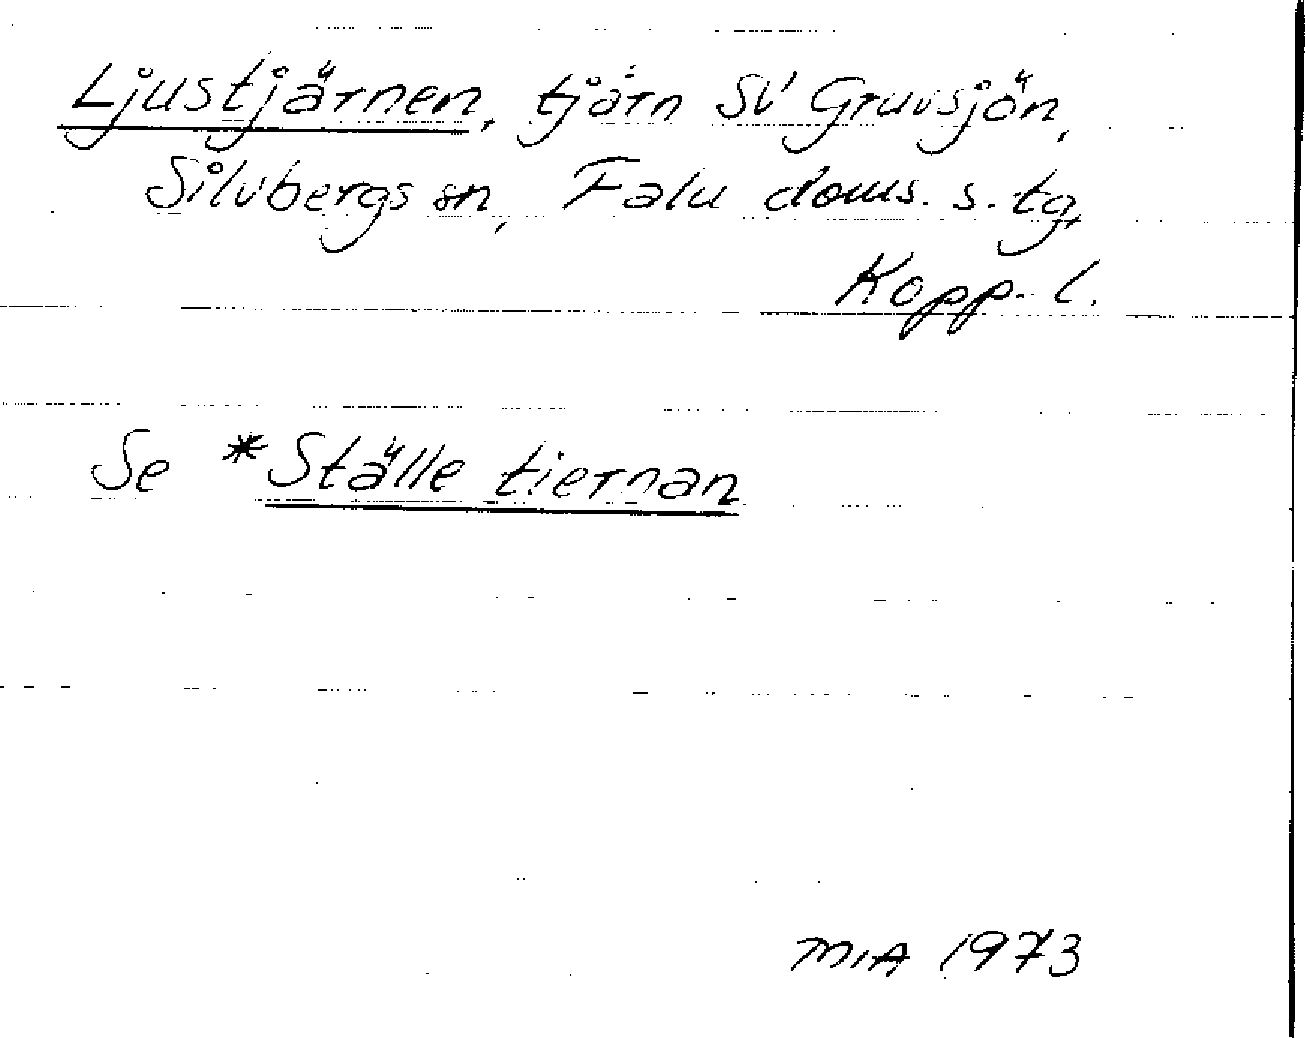 Ljustjärnen, tjärn SV Gruvsjön,
Silvbergs sn, Falu doms. s. tg,
Kopp. l.
Se *Ställe tiernan
MIA 1973